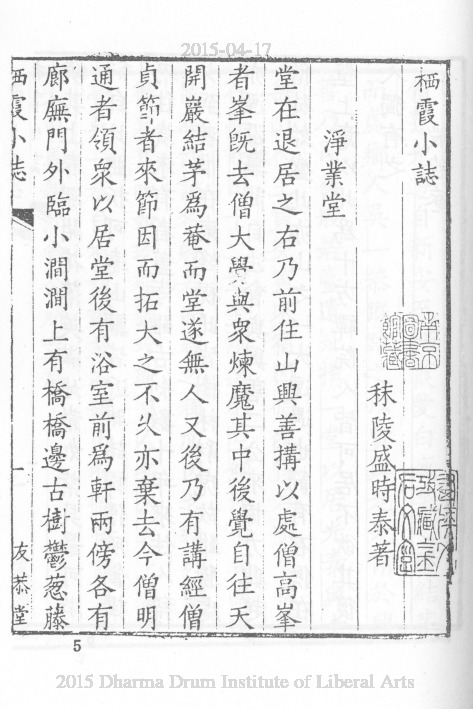 2015-04-17
栖霞小誌
秣陵盛時泰著
淨業堂
堂在退居之右乃前住山興善搆以處僧高峯
者峯既去僧大學與衆煉魔其中後覺自往天
開巖結茅爲菴而堂遂無人又後乃有講經僧
貞節者來節因而拓大之不久亦棄去今僧明
通者領衆以居堂後有浴室前爲軒兩傍各有
廊廡門外臨小澗澗上有橋橋邊古樹鬱葱藤
栖霞小志
一
友恭堂
5
2015 Dharma Drum Institute of Liberal Arts